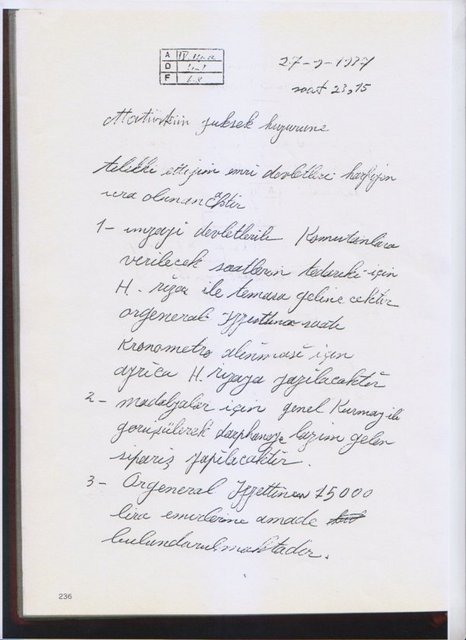 A
D
F
27-9-1937
saat 23,15
Atatürkün yüksek huzuruna
telakki ettiğim emri devletleri harfiyen
icra olunacaktır
1- imzayi devletlerile Komutanlara
verilecek saatlerin tedariki için
H. rıza ile temasa gelinecektir
orgeneral Izzettine saatı
Kronometro alınması için
ayrica H. rızaya yazilacaktır
2- madalyalar için genel Kurmay ile
görüşülerek darphaneye lazim gelen
sipariş yapilacaktır.
3- Orgeneral Izzettinin 75000
lira emirlerine amade
bulundurulmaktadır.
236